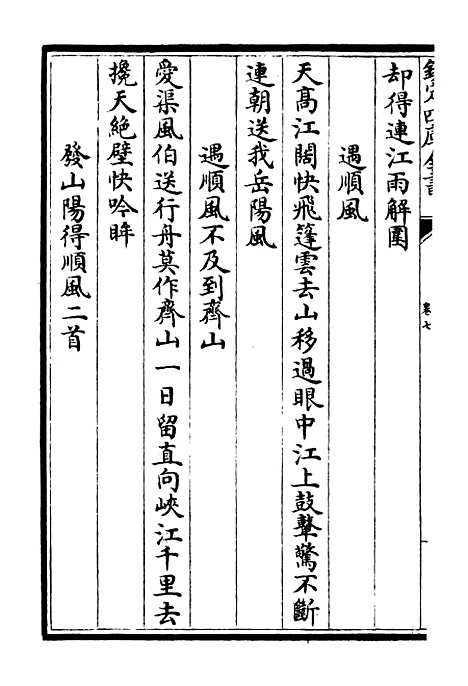 欽定四庫全書
卷七
却得連江雨解圍
遇順風
天髙江闊快飛篷雲去山移過眼中江上鼓鼙驚不斷
連朝送我岳陽風
遇順風不及到齊山
愛渠風伯送行舟莫作齊山一日留直向峽江千里去
攙天絶壁快吟眸
發山陽得順風二首